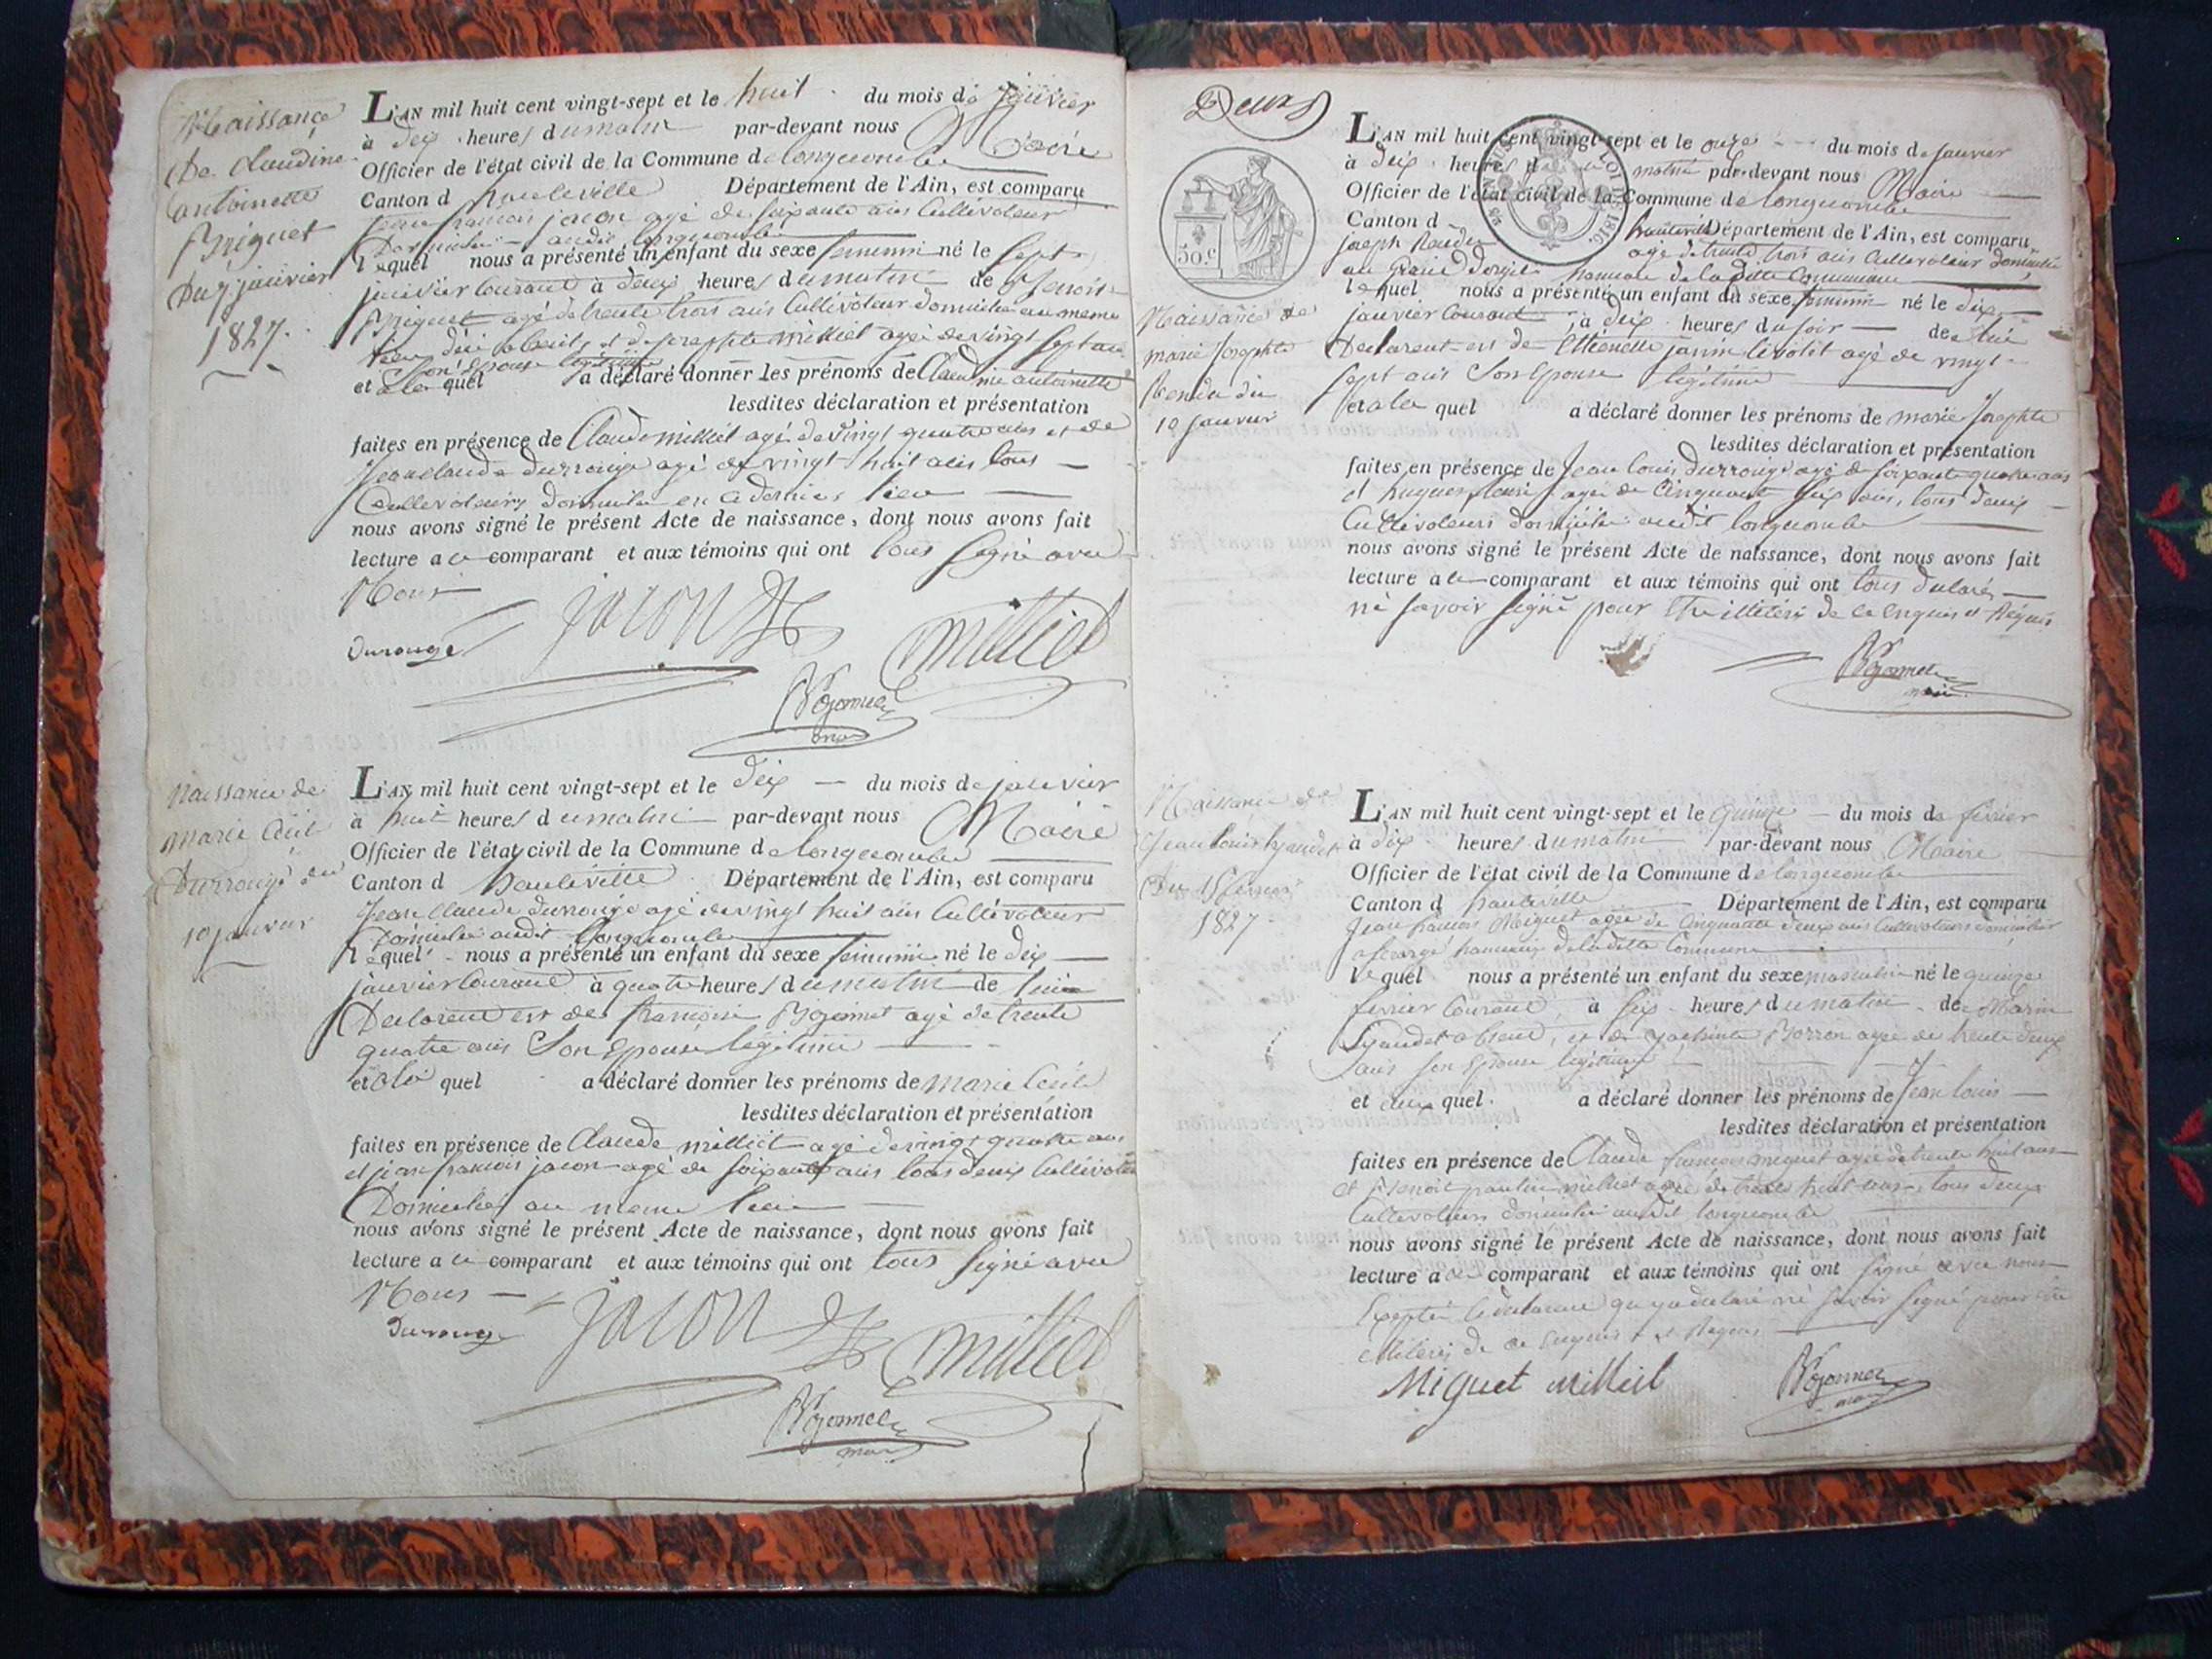 Naissance
De Claudine
antoinette
Du 7 janvier
1827.
L'AN mil huit cent vingt-sept et le huit du mois de janvier
à dix heures du matin par-devant nous Maire
Officier de l'état civil de la Commune de longecombe
Canton d hauteville Département de l'Ain, est comparu
jean francois jacon agé de soixante ans Cultivateur
Domicilié audit longecombe
lequel nous a présenté un enfant du sexe feminin né le sept
janvier Courant à deux heures du matin de Benoit
agé de trente trois ans Cultivateur domicilié au meme
lieu et de josephte milliet agée de vingt sept ans
son Epouse légitime
et a la quel a déclaré donner les prénoms de Claudine antoinette
lesdites déclaration et présentation
faites en présence de Claude milliet agé de vingt quatre ans et de
Jean Claude Durrouge agé de vingt huit ans tous
Cultivateurs domiciliés en ce dernier lieu
nous avons signé le présent Acte de naissance, dont nous avons fait
lecture a ce comparant et aux témoins qui ont tous signé avec
Nous
Durouge jacon milliet
maire
Naissance de
marie Cécile
Durrouge du
10 janvier
L'AN mil huit cent vingt-sept et le dix du mois de janvier
à huit heures du matin par-devant nous Maire
Officier de l'état civil de la Commune de longecombe
Canton d hauteville Département de l'Ain, est comparu
Jean Claude durrouge agé de vingt huit ans Cultivateur
Domicilié audit longecombe
lequel nous a présenté un enfant du sexe feminin né le dix
janvier Courant à quatre heures du matin de lui
Declarent et de francoise agé de trente
quatre ans Son Epouse légitime
et a la quel a déclaré donner les prénoms de marie Cécile
lesdites déclaration et présentation
faites en présence de Claude milliet agé de vingt quatre ans
et jean francois jacon agé de soixante ans tous deux Cultivateurs
Domiciliés au meme lieu
nous avons signé le présent Acte de naissance, dont nous avons fait
lecture a ce comparant et aux témoins qui ont tous signé avec
Nous
Durouge jacon milliet
maire
Deux
50 c
LOI DE 1816.
Naissance de
marie Josephte
du
10 janvier
L'AN mil huit cent vingt-sept et le onze du mois de janvier
à dix heures du matin par-devant nous Maire
Officier de l'état civil de la Commune de longecombe
Canton d hauteville Département de l'Ain, est comparu
joseph agé de trente trois ans Cultivateur domicilié
au hameau de la ditte Commune
lequel nous a présenté un enfant du sexe feminin né le dix
janvier Courant à dix heures du soir de lui
Declarent et de agé de vingt
sept ans Son Epouse légitime
et a la quel a déclaré donner les prénoms de marie Josephte
lesdites déclaration et présentation
faites en présence de Jean louis Durrouge agé de soixante quatre ans
et hugues agé de Cinquante six ans, tous deux
Cultivateurs domiciliés audit longecombe
nous avons signé le présent Acte de naissance, dont nous avons fait
lecture a le comparant et aux témoins qui ont tous declaré
né savoir signé pour être illiteré de ce Enquis et Réquis
maire
Naissance de
Jean louis
Du 15 fevrier
1827
L'AN mil huit cent vingt-sept et le quinze du mois de fevrier
à dix heures du matin par-devant nous Maire
Officier de l'état civil de la Commune de longecombe
Canton d hauteville Département de l'Ain, est comparu
Jean francois Miguet agée de Cinquante deux ans Cultivateur domicilié
hameau de la ditte Commune
lequel nous a présenté un enfant du sexe masculin né le quinze
fevrier Courant, à six heures du matin de Marin
absent, et de agée de trente deux
ans son Epouse légitime
et quel a déclaré donner les prénoms de Jean louis
lesdites déclaration et présentation
faites en présence de Claude francois miguet agée de trente huit ans
et Benoit milliet agée de trente huit ans, tous deux
Cultivateurs domiciliés audit longecombe
nous avons signé le présent Acte de naissance, dont nous avons fait
lecture a ce comparant et aux témoins qui ont signé avec nous
Excepté le declarent qui a declaré né savoir signé pour être
illiteré de ce Enquis et Requis
Miguet Milliet